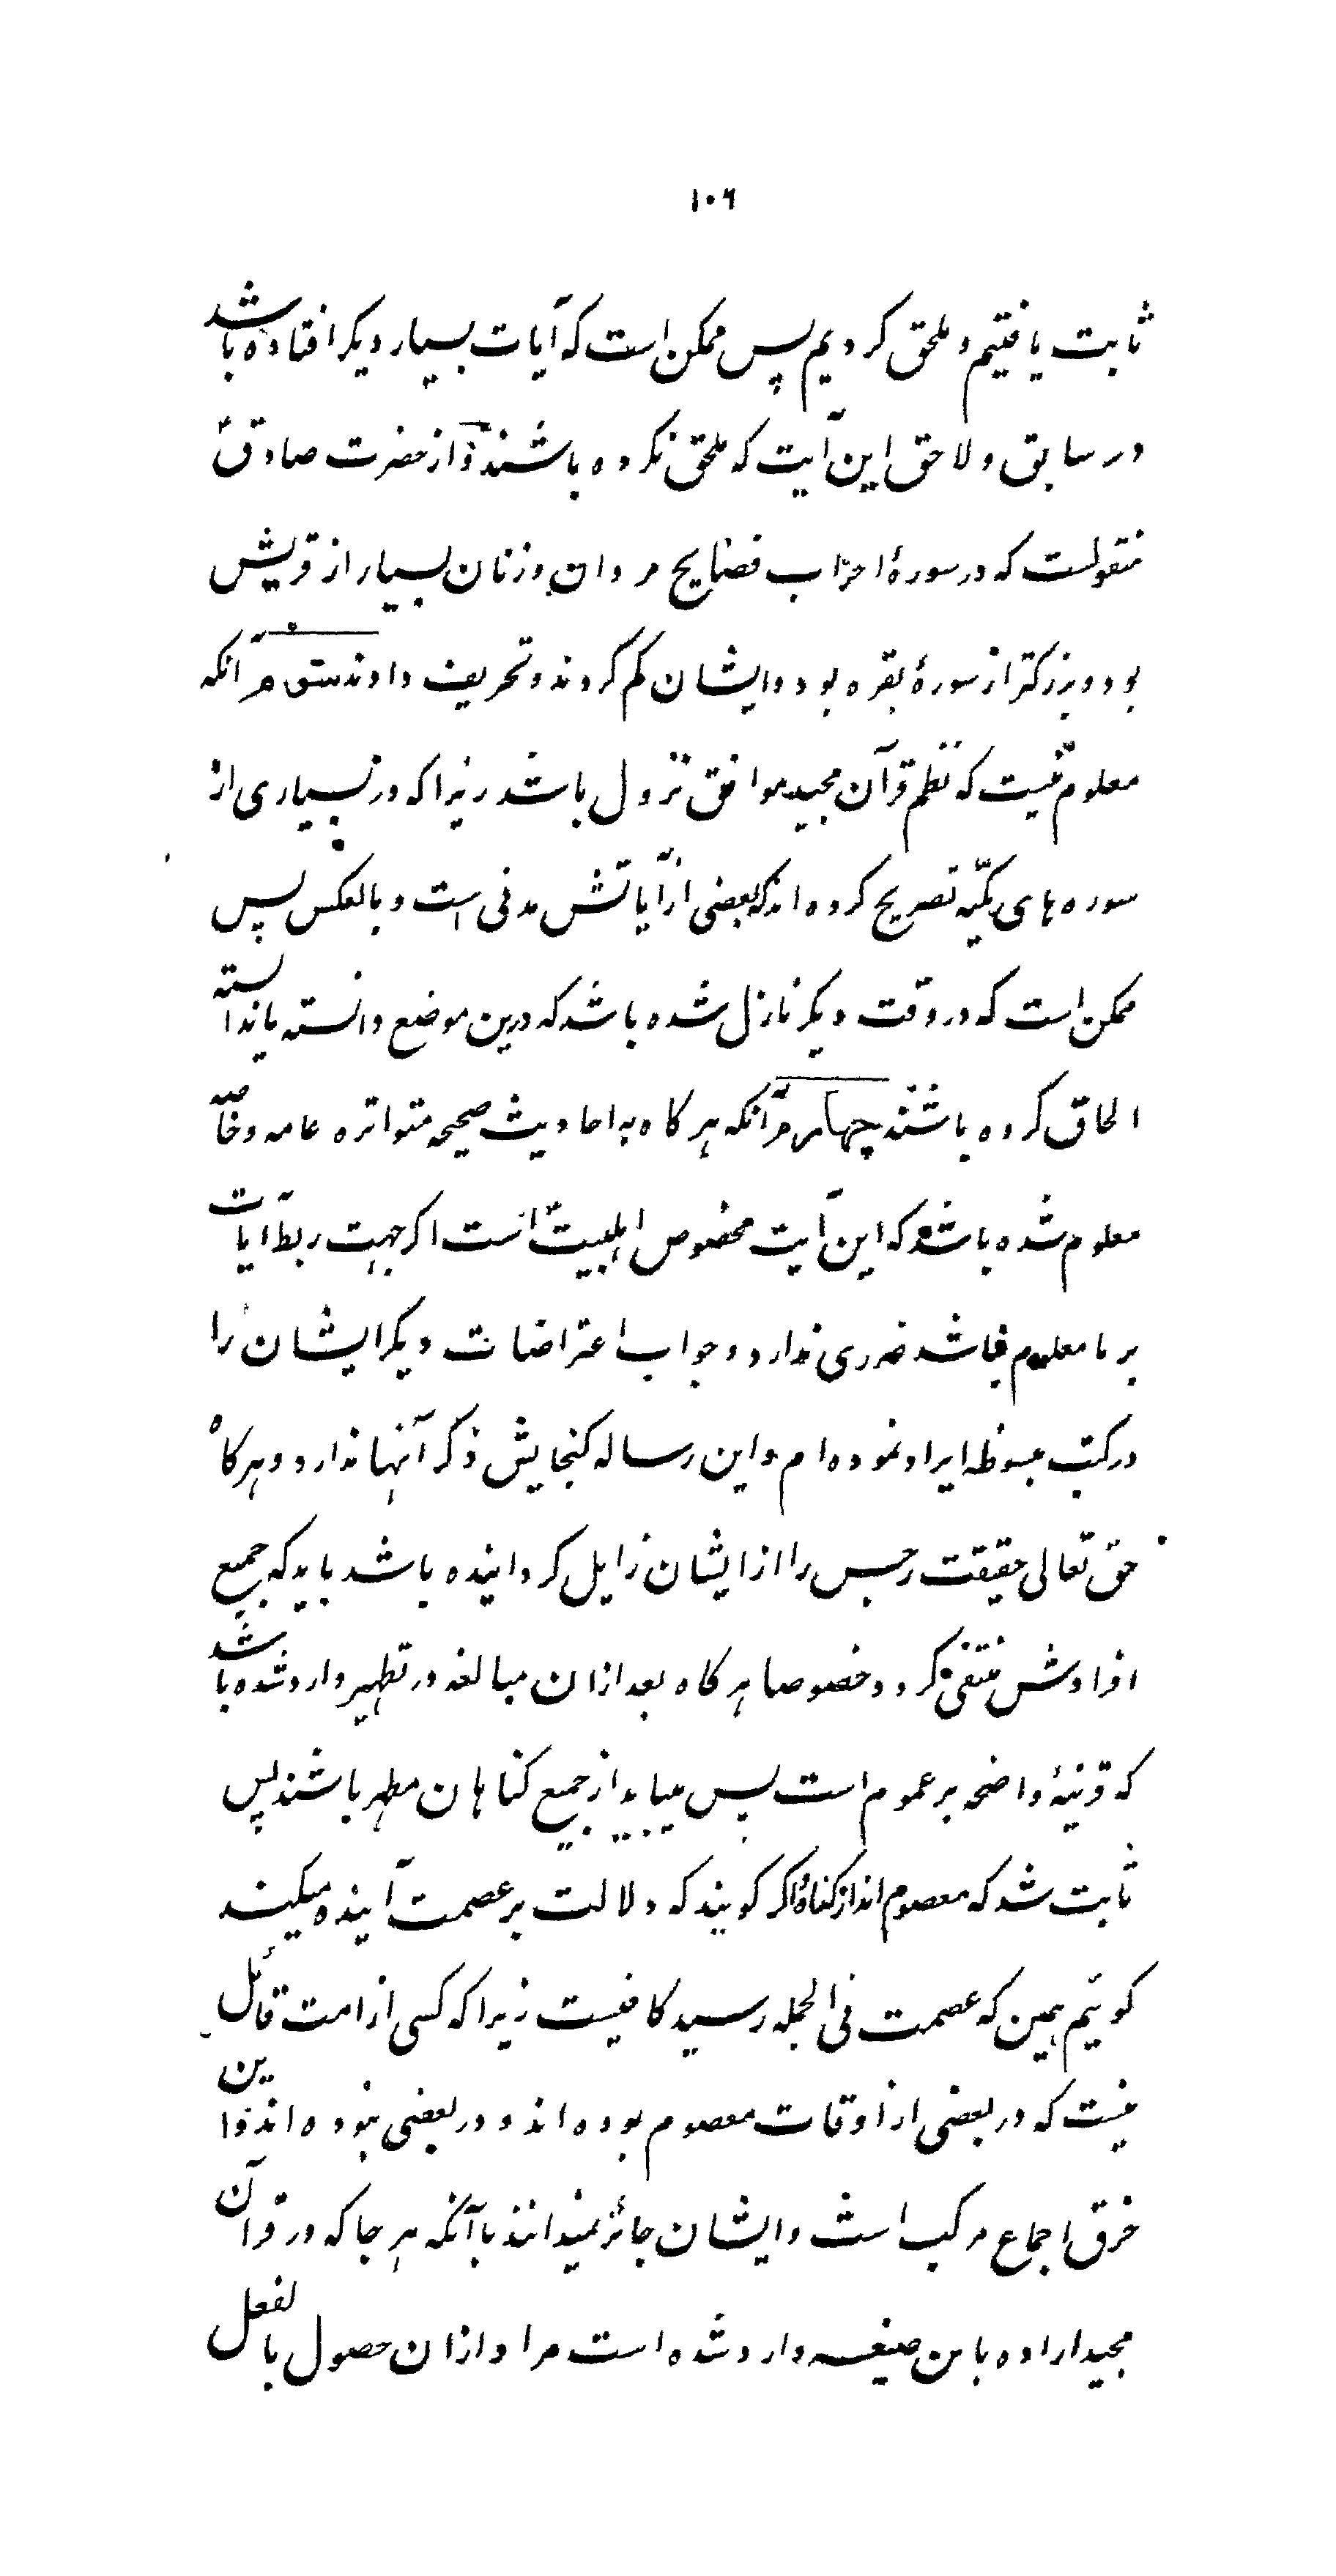 ۱۰۶
ثابت یافتیم و ملحق کردیم پس ممکن است که آیات بسیار دیکر افتاده باشد
در سابق و لاحق این آیت که ملحق نکرده باشند و از حضرت صادقؑ
منقولست که در سورهٔ احزاب فضایح مردان و زنان بسیار از قریش
بود و بزرکتر از سورهٔ بقره بود و ایشان کم کردند و تحریف دادند سوّم آنکه
معلوم نیست که نظم قرآن مجید موافق نزول باشد زیرا که در بسیاری از
سوره های مکّیه تصریح کرده اند که بعضی از آیاتش مدنی است و بالعکس پس
ممکن است که در وقت دیکر نازل شده باشد که درین موضع دانسته یا ندانسته
الحاق کرده باشند چهارم آنکه هر کاه به احادیث صحیحه متواتره عامه و خاصّه
معلوم شده باشد که این آیت مخصوص اهلبیتؑ است اکر جهت ربط آیات
بر ما معلوم نباشد ضرری ندارد و جواب اعتراضات دیکر ایشان را
در کتب مبسوطه ایراد نموده ام و این رساله کنجایش ذکر آنها ندارد و هر کاه
حق تعالی حقیقت رجس را از ایشان زایل کردانیده باشد باید که جمیع
افرادش منتفی کردد خصوصا هر کاه بعد ازان مبالغه در تطهیر وارد شده باشد
که قرنیهٔ واضحه بر عموم است پس میباید از جمیع کناهان مطهر باشند پس
ثابت شد که معصوم اند از کناه و اکر کویند که دلالت بر عصمت آینده میکند
کوئیم همین که عصمت فی الجمله رسید کافیست زیرا که کسی از امت قائل
نیست که در بعضی از اوقات معصوم بوده اند و در بعضی نبوده اند و این
خرق اجماع مرکب است و ایشان جائز نمیدانند با آنکه هر جا که در قرآن
مجید اراده باین صیغه وارد شده است مراد ازان حصول بالفعل